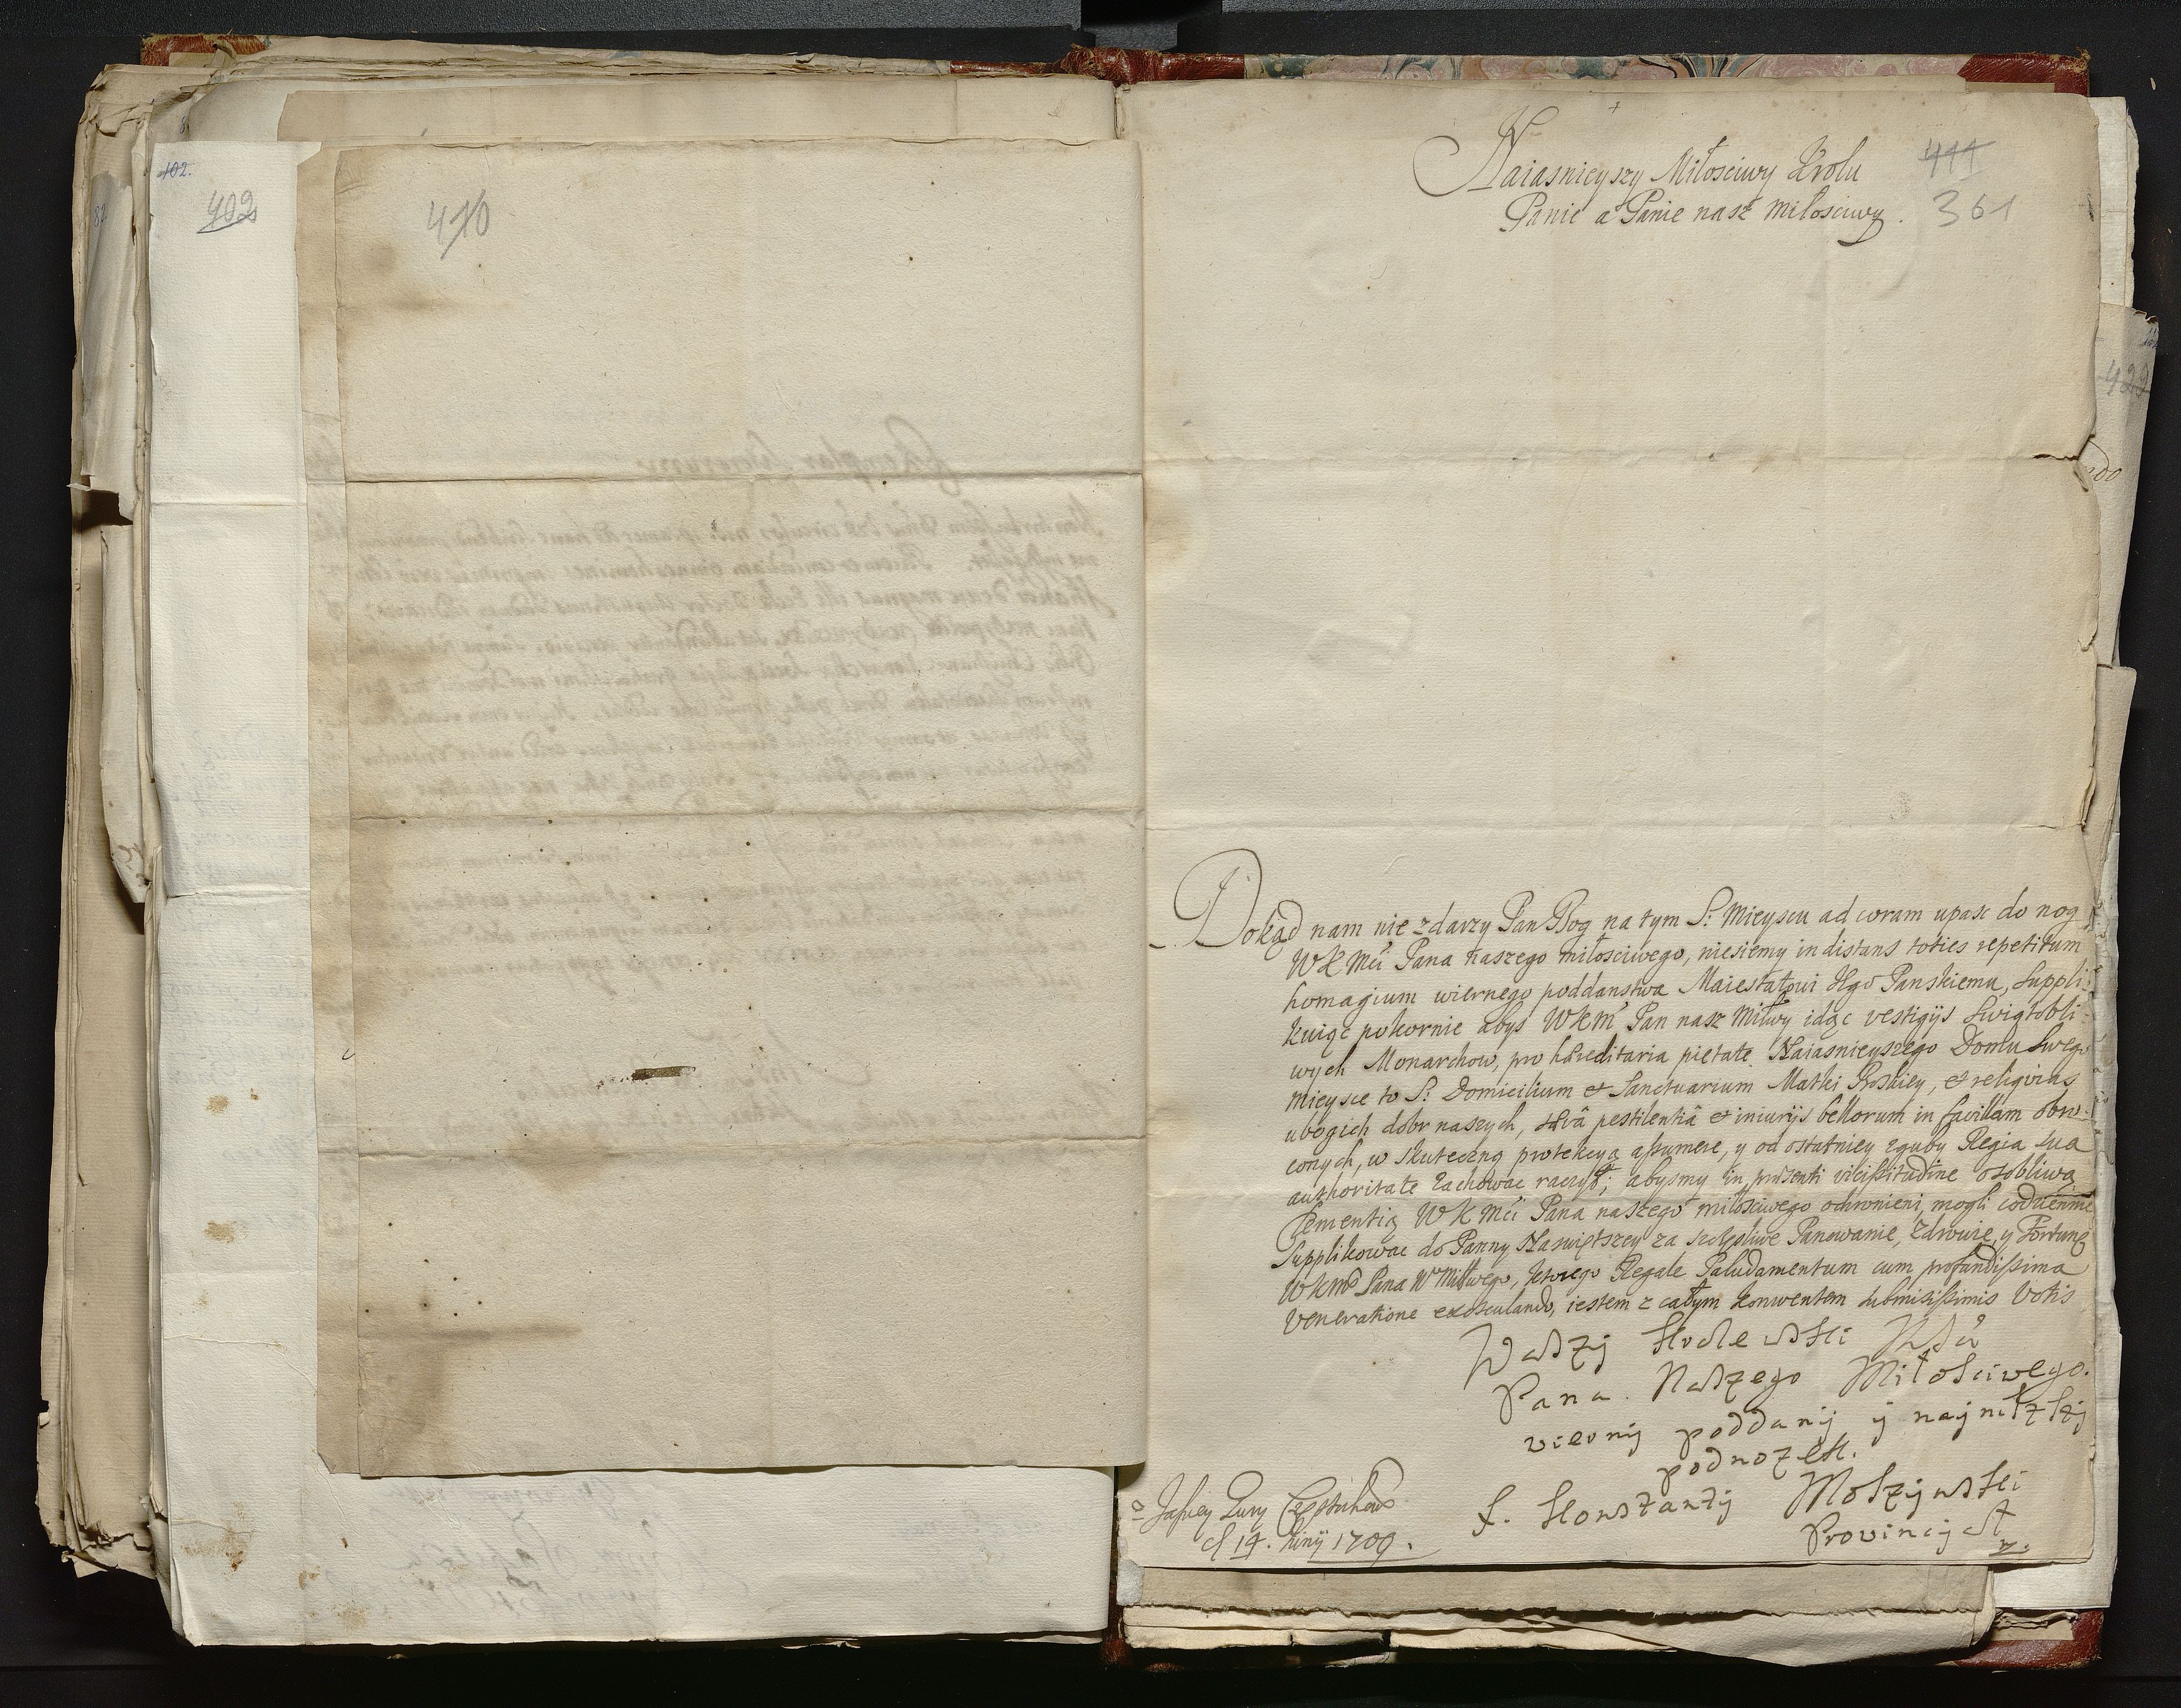 402.
402
410
Naiasnieyszy Miłosciwy Krolu
411
Panie a Panie nasz miłosciwy.
361
Dokąd nam nie zdarzy Pan Bog na tym S: Mieyscu ad coram upasc do nog
WKMci Pana naszego miłosciwego, niesiemy in distans toties repetitum
homagium wiernego poddanstwa Maiestatowi Jego Panskiemu, suppli-
kuiąc pokornie abys WKM Pan nasz Miłwy idąc vestigijs swiątobli-
wych Monarchow, pro hæreditaria pietate Naiasnieyszego Domu swego
mieysce to S: Domicilium et Sanctuarium Matki Boskiey, et religvias
ubogich dobr naszych, pestilentiâ et iniurijs bellorum in favillam obro-
conych, w skuteczną protekcyą assumere, y od ostatniey zguby Regia sua
authoritate zachowac raczył; abysmy in præsenti vicissitudine osobliwą
Clementią WKMci Pana naszego miłosciwego ochronieni, mogli codziennie
supplikowac do Panny Naswiętszey za szczęsliwe Panowanie, zdrowie, y Fortunę
WKMci Pana Miłwego, ktorego Regale Paludamentum cum profundissima
veneratione exosculando, iestem z całym konwentem submisissimis votis
Waszy Krolewski Msci
Pana Naszego Miłosciwego.
wierny poddany y nayniższy
podnożek.
f. Konstanty Moszynski
Prowincyał
z Jasney Gury Częstochow
d 14. Junij 1709.